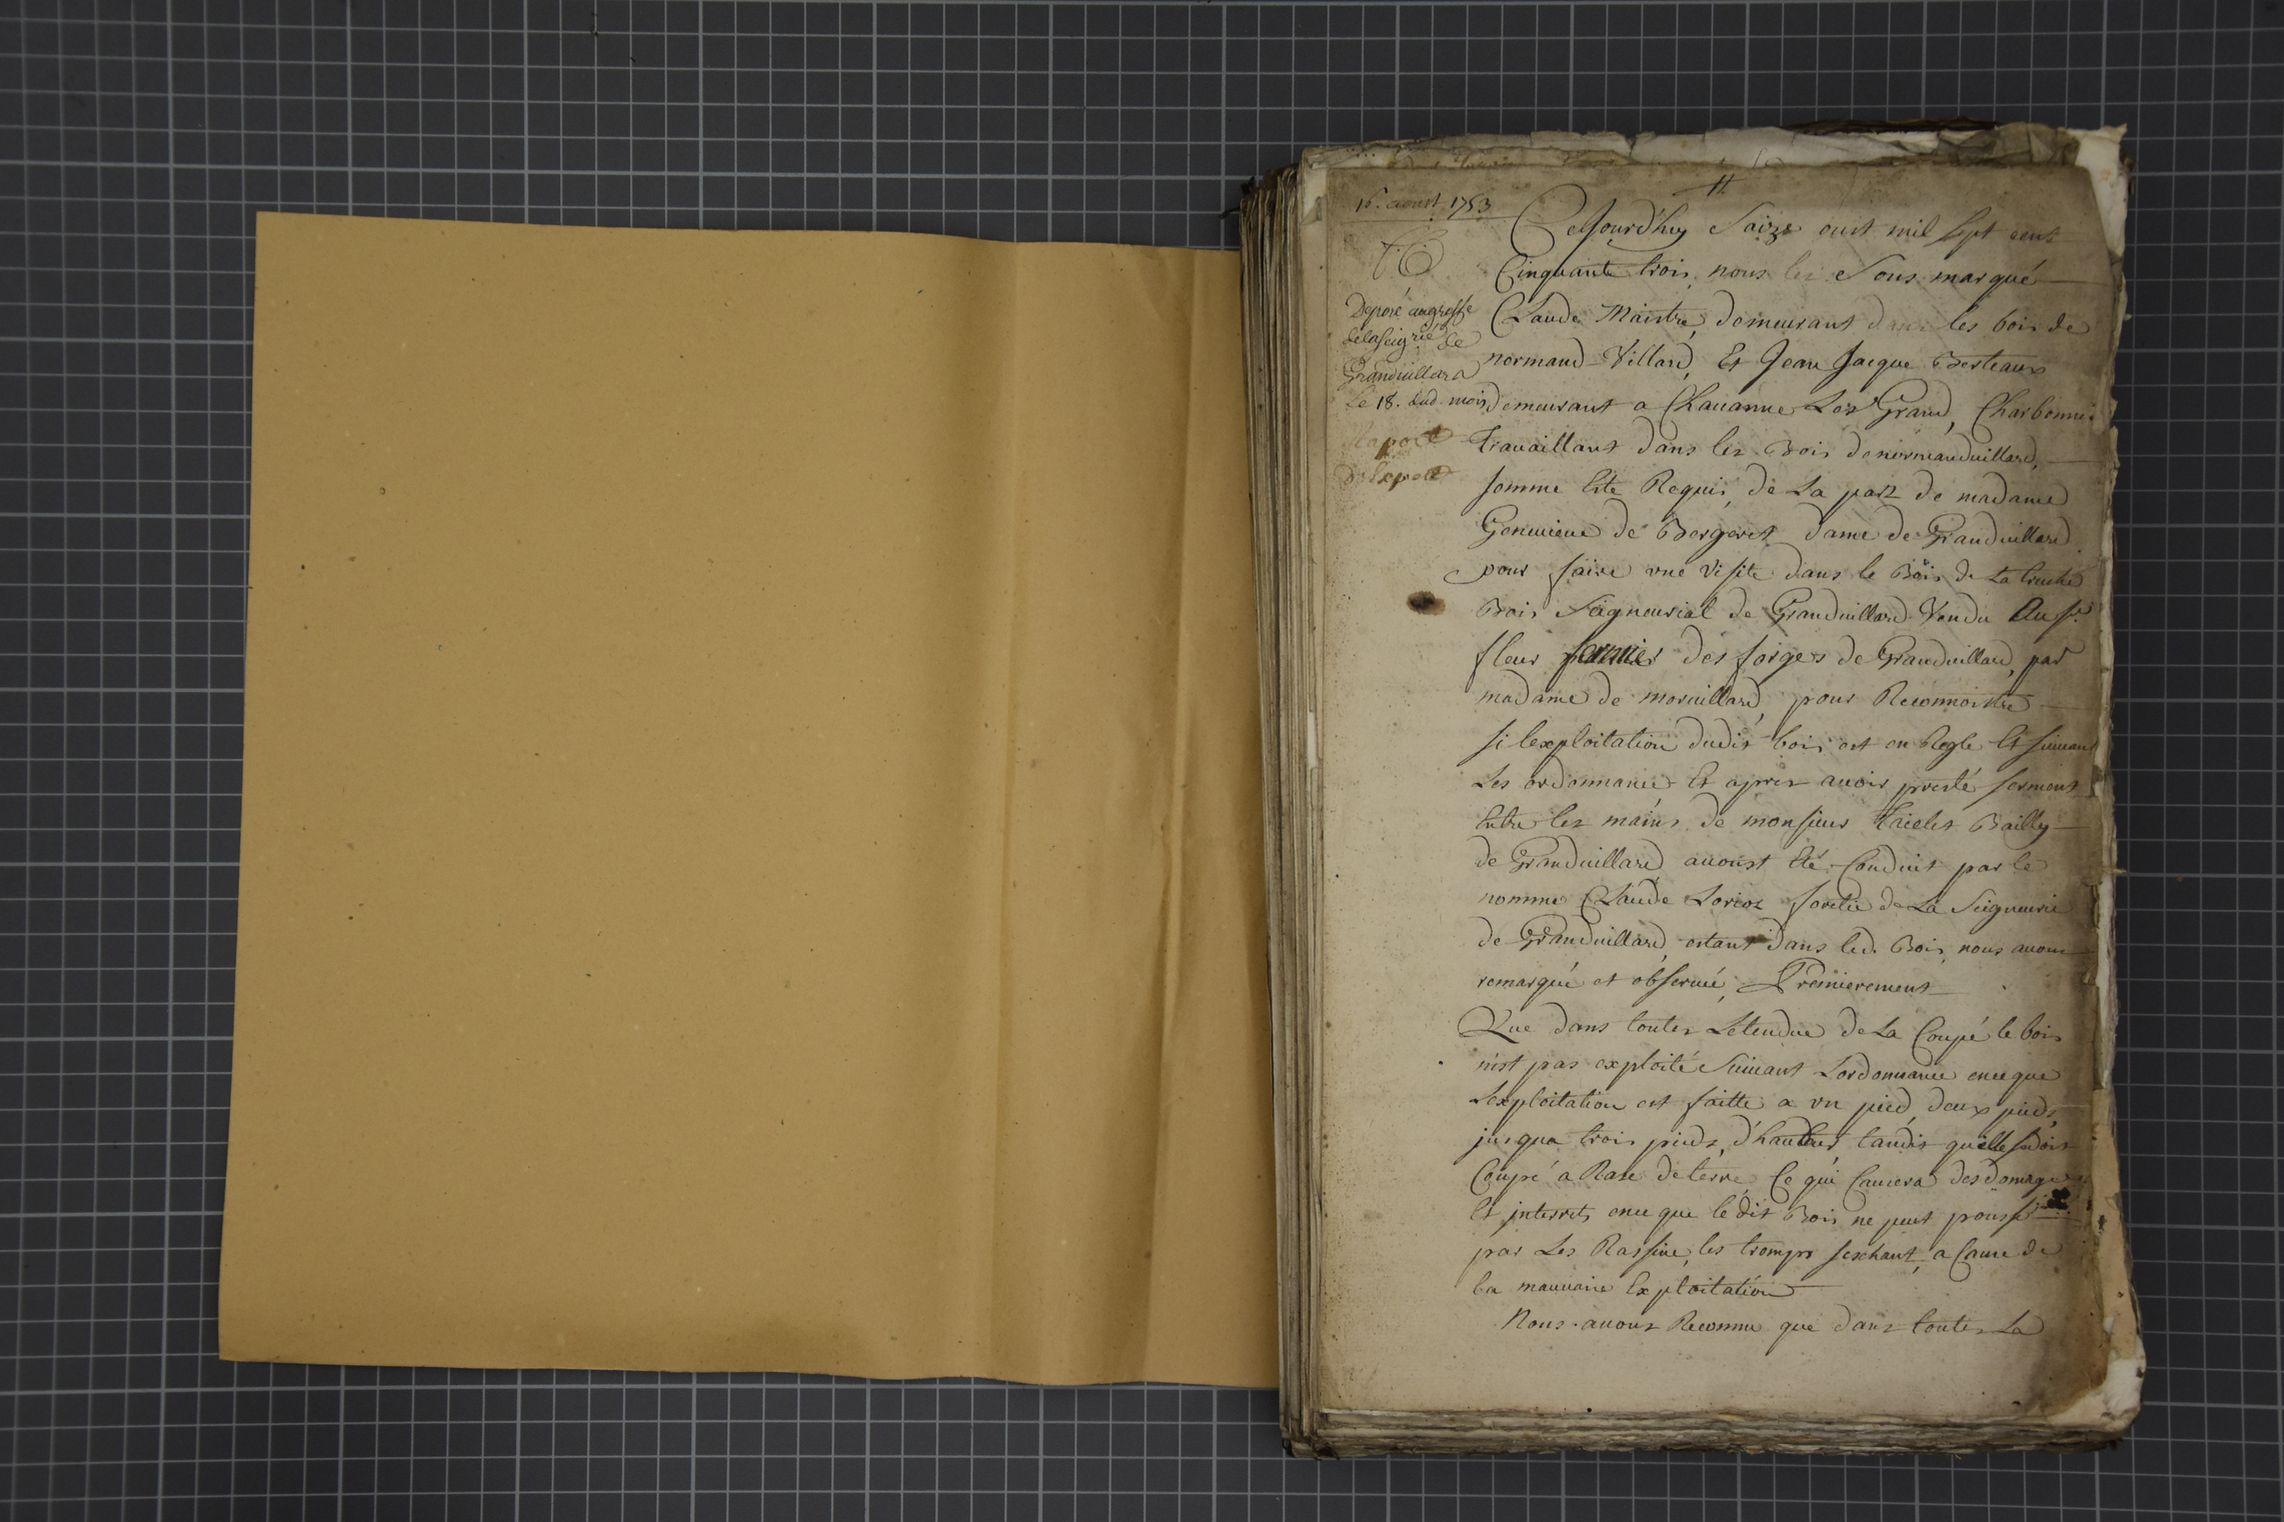 16. aoust 1753
Deposé augreffe
delaseigrie de
Granduillard
Le 18. dud. mois
Raport
d'Expert
Cejourd'huy Saize oust mil sept cent
Cinquante trois, nous les Sous marqué
Claude Maistre, demeurant dans les bois de
normand-Villard, Et Jean Jacque Berteaux
demeurant a Chauanne Les Grand, Charbonnie
trauaillant dans les Bois denormanduillard,
somme Esté Requis, de La part de madame
Geneuieue de Bergeret dame de Granduillard
pour faire vne visite dans le Bois de La
Bois Seigneurial de Granduillard Vendu Au sr.
fleur fermier des forges de Granduillard, par
madame de moruillard, pour Reconnoistre
si lexploitation dudit bois est en Regle Et suiuant
Les ordonnance Et apres auoir presté serment
Entre les mains de monsieur Bailly
de Granduillard auonst Eté Conduit par le
nomme Claude Lorioz foretie de La Seigneurie
de Granduillard, estant dans led. Bois, nous auons
remarqué et obserué, Premierement
Que dans toutes Letendue de La Coupé le bois
nest pas exploité Suiuant Lordonnance ence que
Lexploitation est faitte a vn pied, deux pieds,
jusqua trois pieds, d'hauteur, tandis quelle sedoit
Coupé a Rase deterre, Ce qui Causera des domage
Et interrets ence que ledit Bois ne peut pousse
par Les Rassine, les tromps sexhant, a Cause de
la mauuaise Exploitation
Nous auons Reconnu que dans toutes La